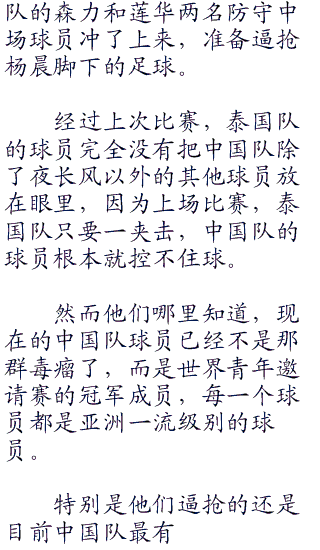 队的森力和莲华两名防守中
场球员冲了上来，准备逼抢
杨晨脚下的足球。
经过上次比赛，泰国队
的球员完全没有把中国队除
了夜长风以外的其他球员放
在眼里，因为上场比赛，泰
国队只要一夹击，中国队的
球员根本就控不住球。
然而他们哪里知道，现
在的中国队球员已经不是那
群毒瘤了，而是世界青年邀
请赛的冠军成员，每一个球
员都是亚洲一流级别的球
员。
特别是他们逼抢的还是
目前中国队最有